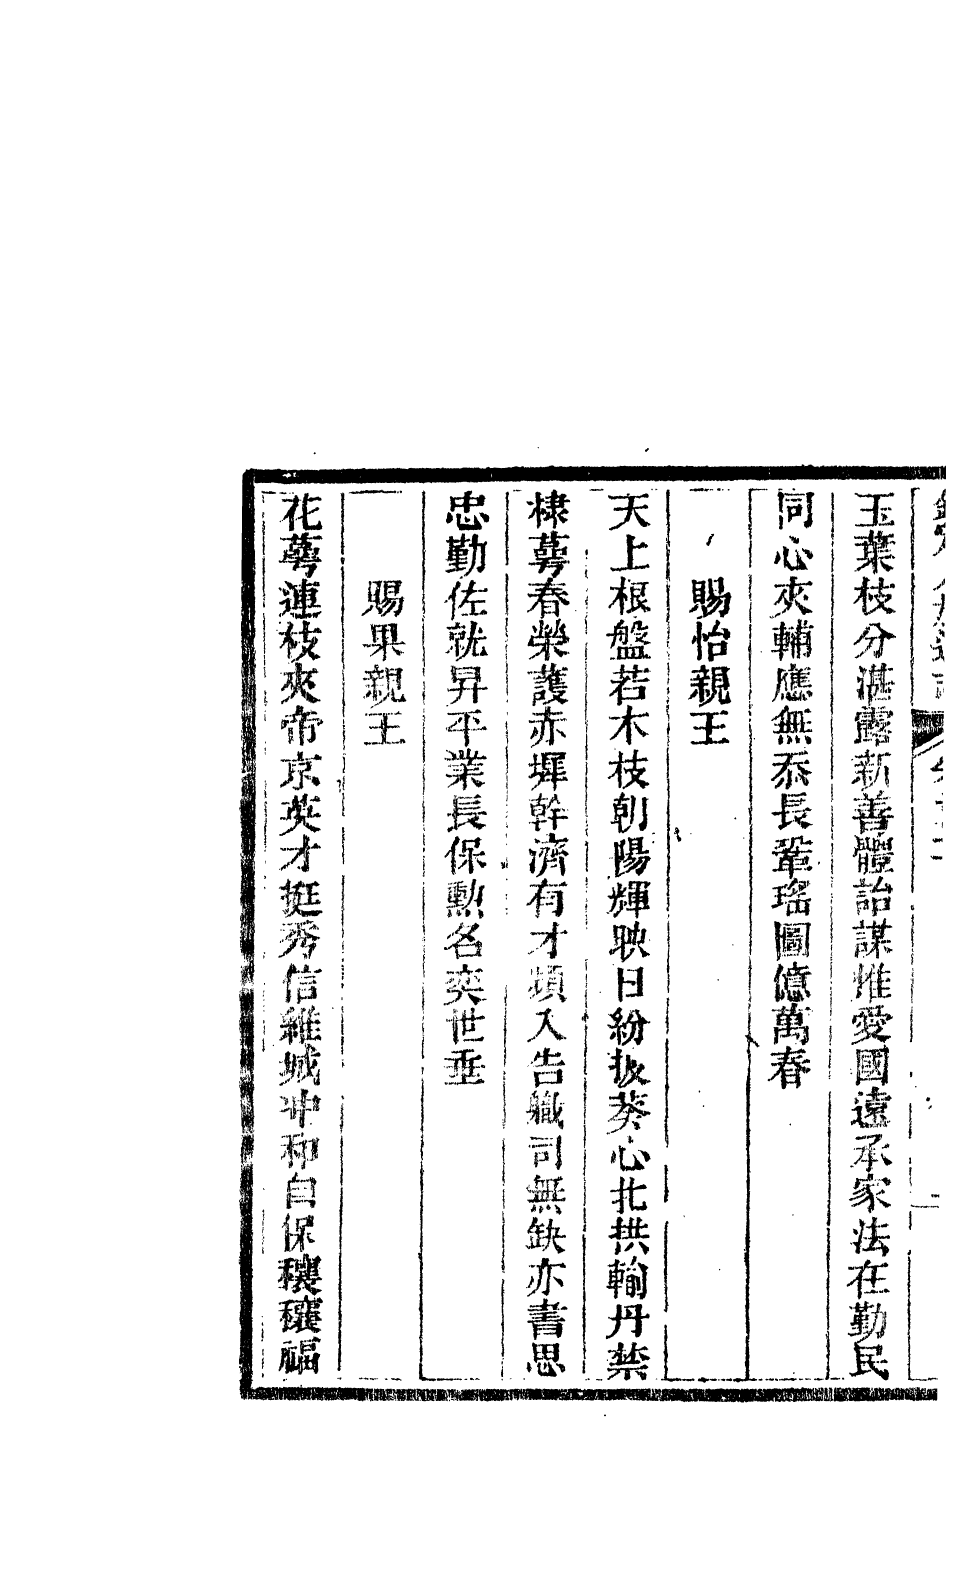 玉葉枝分湛露新善體詒謀惟愛國遠承家法在勤民
同心夾輔應無忝長鞏瑤圖億萬春
賜怡親王
天上根盤若木枝朝陽輝映日紛披葵心北拱輸丹禁
棣萼春榮護赤墀幹濟有才頻入告職司無缺亦書思
忠勤佐就昇平業長保勲名奕世垂
賜果親王
花萼連枝夾帝京英才挺秀信維城冲和自保穰穰福